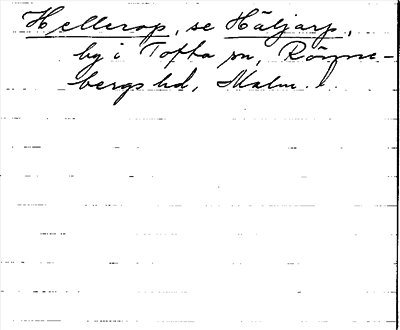 Hellerop, se Häljarp,
by i Tofta sn, Rönne-
bergs hd, Malm.